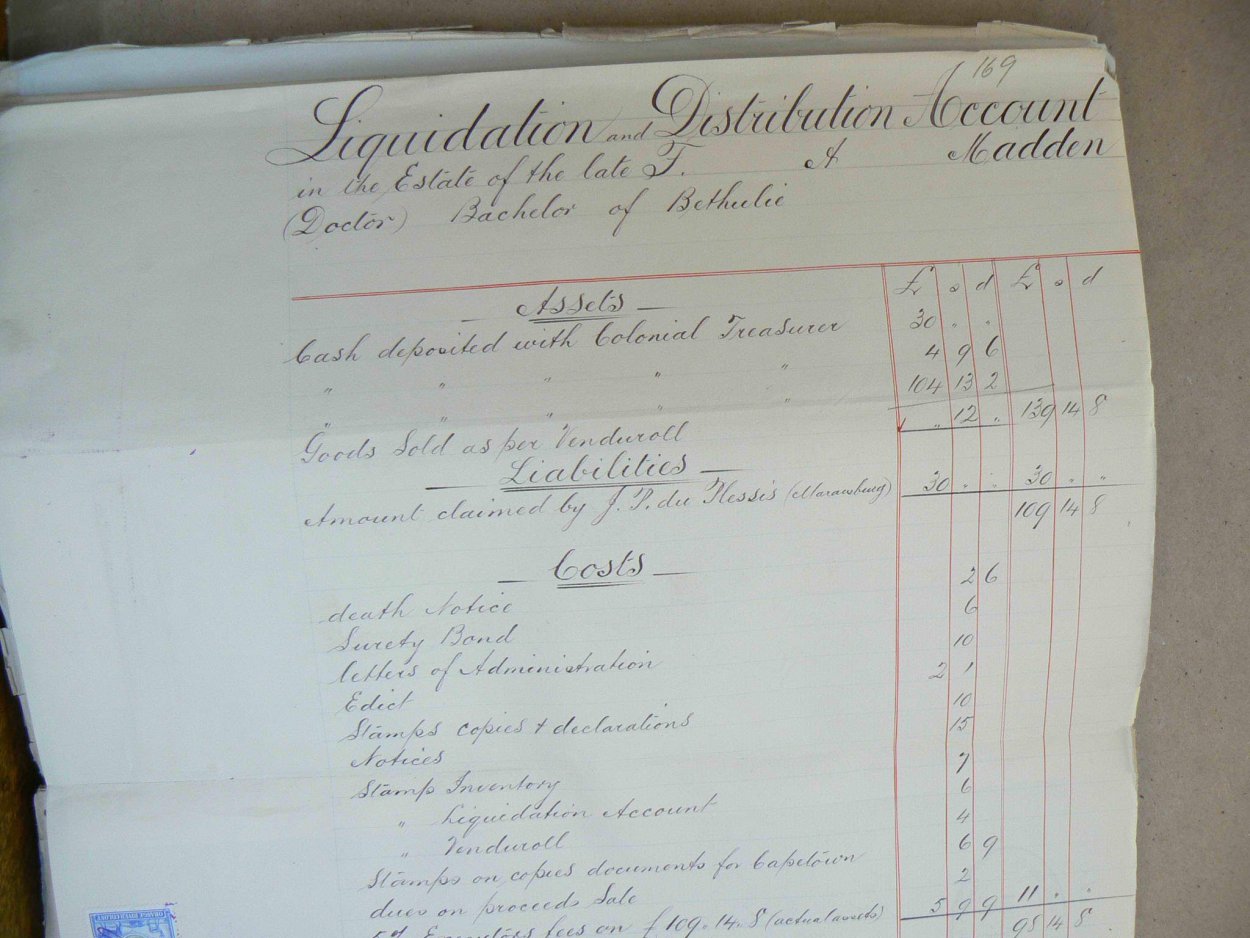 169
Liquidation and Distribution Account
in the Estate of the late F. A Madden
(Doctor) Bachelor of Bethulie
£ s d £ s d
Assets
Cash deposited with Colonial Treasurer 30 " "
" " " " " 4 9 6
" " " " " 104 13 2
Goods Sold as per Venduroll " 12 " 139 14 8
Liabilities
Amount claimed by J. P. du Plessis 30 " " 30 " "
109 14 8
Costs
death Notice 2 6
Surety Bond 6
letters of Administration 10
Edict 2 1
Stamps copies & declarations 10
Notices 15
Stamp Inventory 7
" Liquidation Account 6
" Venduroll 4
Stamps on copies documents for Capetown 6 9
dues on proceeds Sale 2
5% fees on £109. 14. 8 (actual assets) 5 9 9 11 " "
98 14 8
ORANGE RIVER COLONY